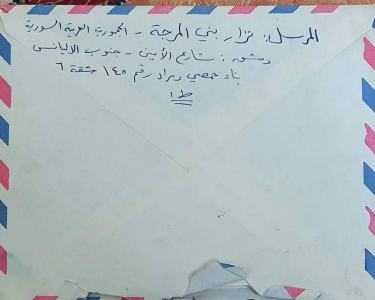 المرسل: نزار بني المرجة - الجمهورية العربية السورية
دمشق: شارع الأمين - جنوب الاليانس
بناء حمصي ومراد رقم ١٤٥ شقة ٦
ط١